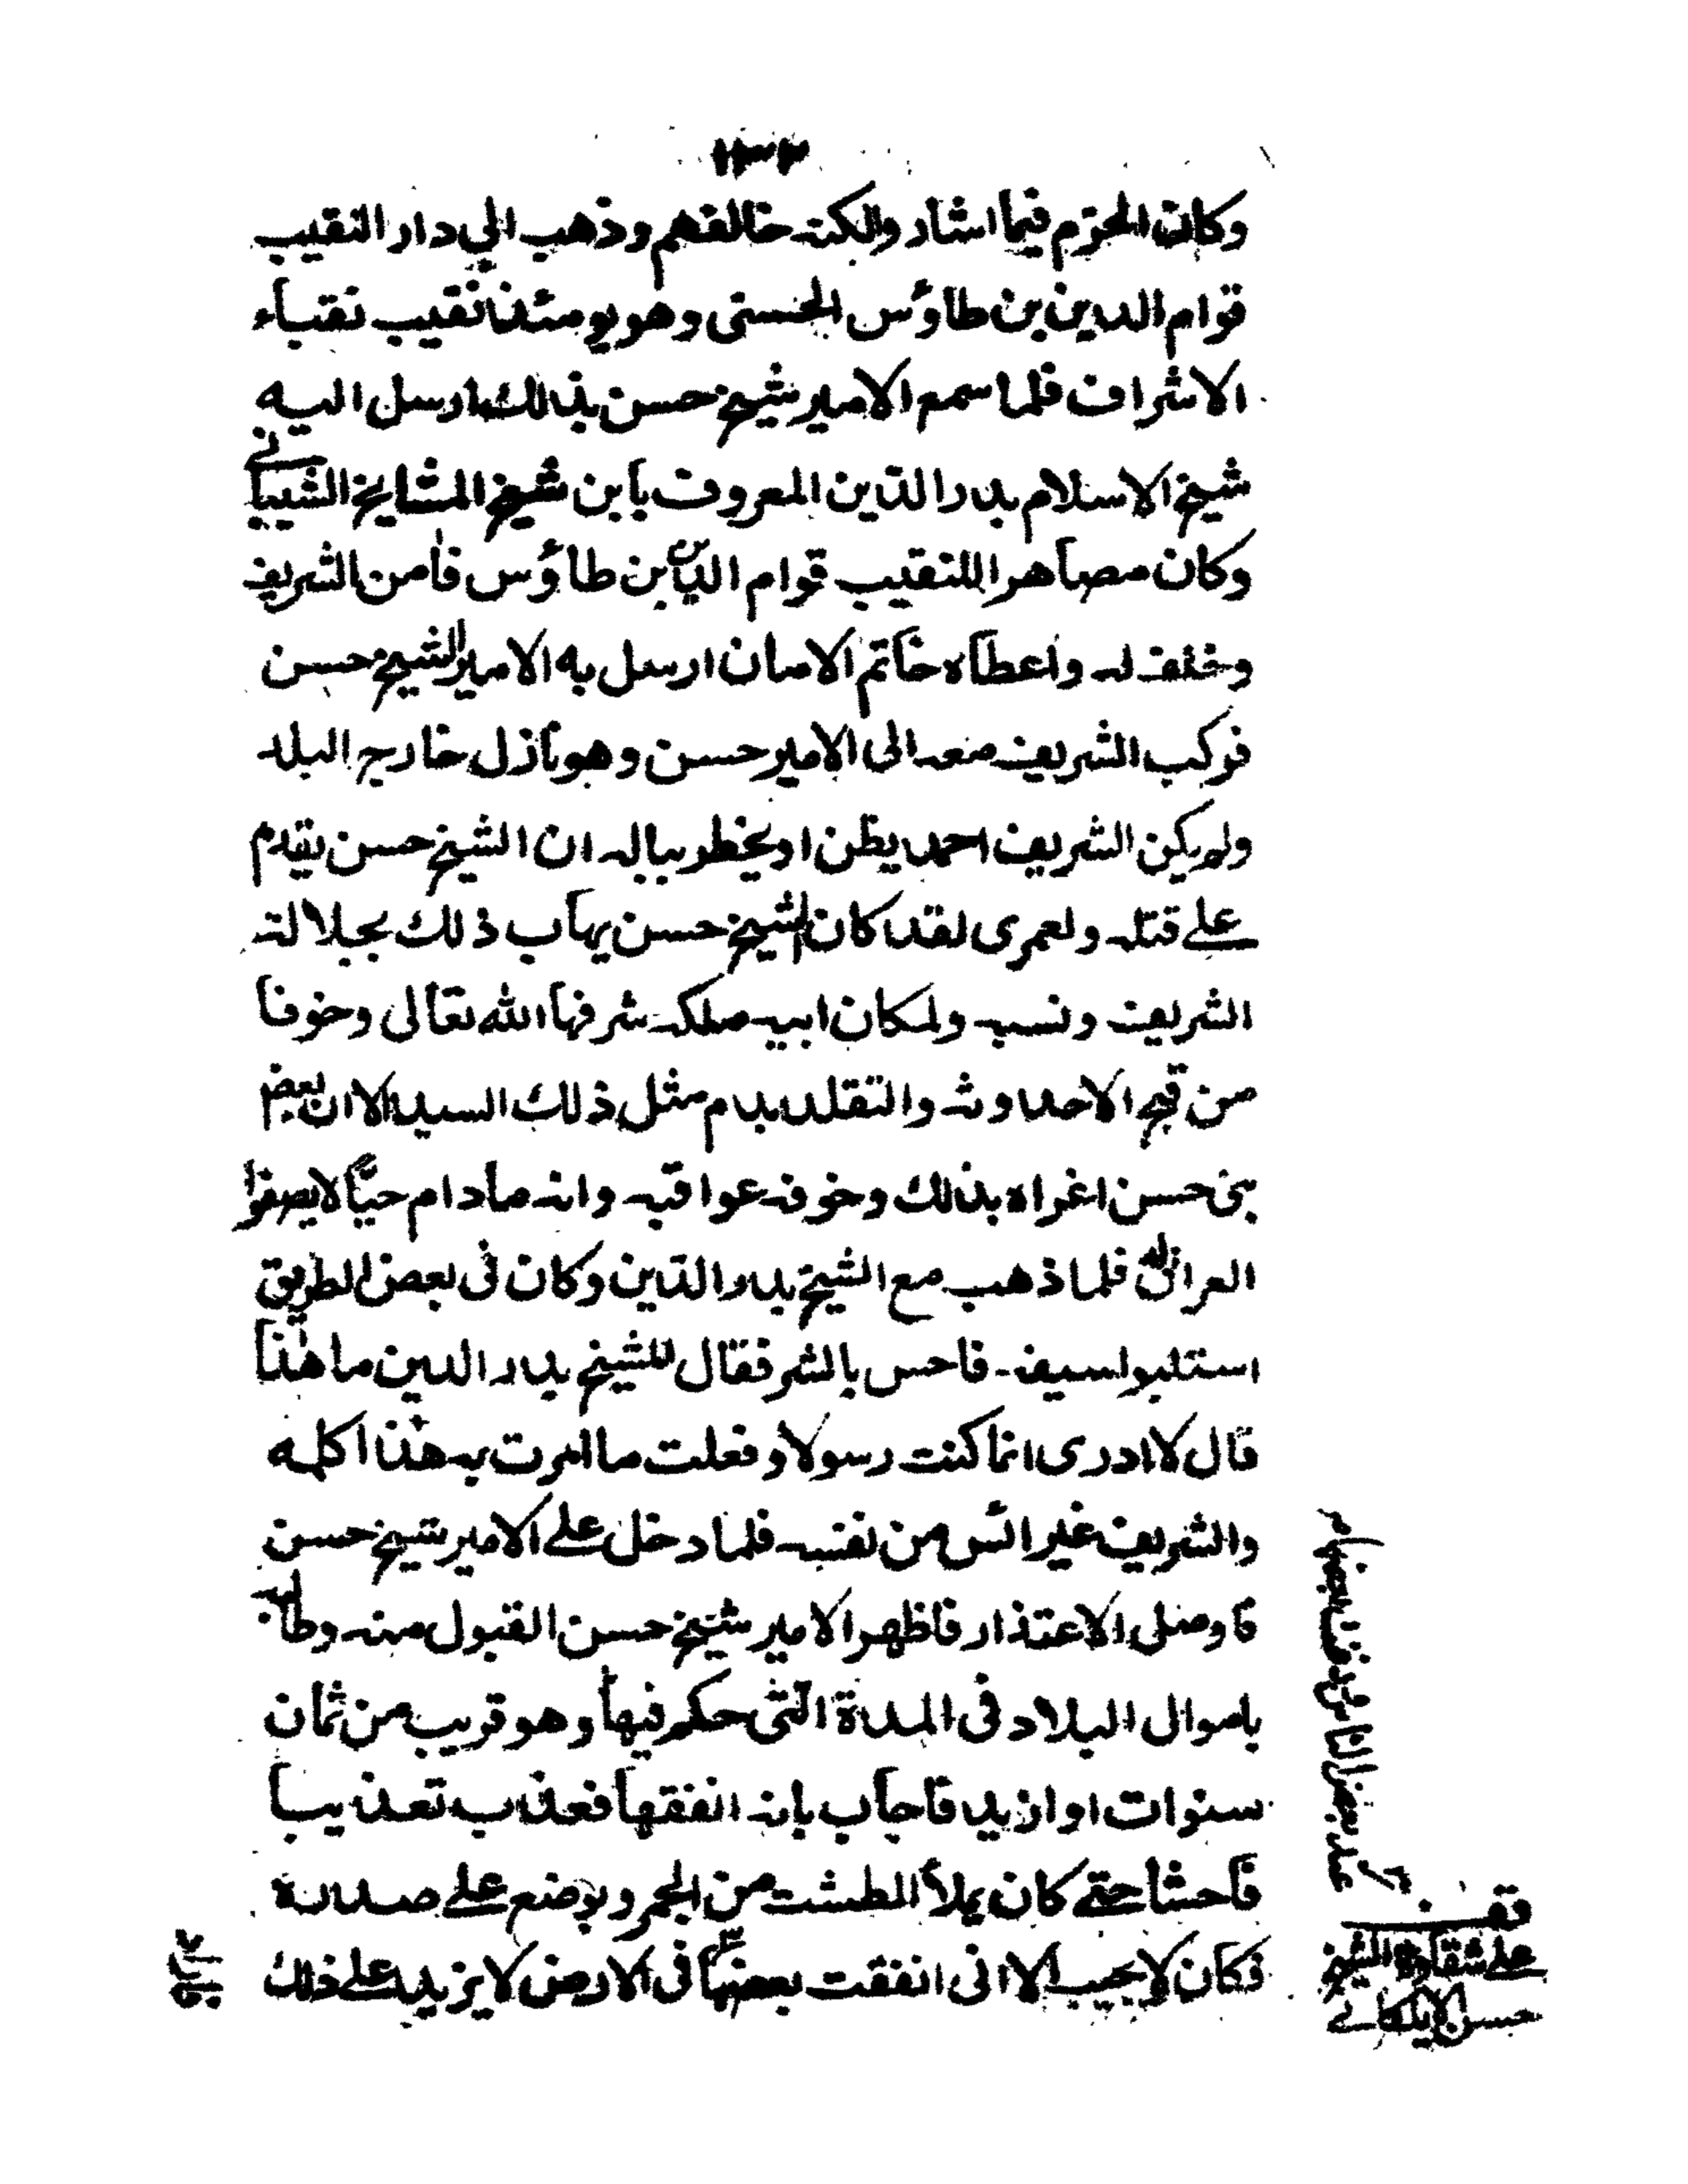 ١٣٢
وكان الحزم فيما اشار والكنه خالفهم وذهب الي دار النقيب
قوام الدين بن طاؤس الحسنى وهو يومئذ نقيب نقباء
الاشراف فلما سمع الامير شيخ حسن بذالك ارسل اليه
شيخ الاسلام بدر الدين المعروف بابن شيخ المشايخ الشيبانے
وكان مصاهرا للنقيب قوام الدين بن طاؤس فامن الشريف
وحلف له واعطاه خاتم الامان ارسل به الامير الشيخ حسن
فركب الشريف معه الى الامير حسن وهو نازل خارج البلد
ولم يكن الشريف احمد يظن او يخطر بباله ان الشيخ حسن يقدم
علے قتله ولعمرى لقد كان الشيخ حسن يهاب ذلك بجلالته
الشريف ونسبه ولمكان ابيه ملكه شرفها الله تعالى وخوفا
من قبح الاحدوثه والتقلد بدم مثل ذلك السيد الا ان بعض
بنى حسن اغراه بذلك وخوفه عواقبه وانه مادام حيّا لا يصفوا
العراق له فلما ذهب مع الشيخ بدر الدين وكان فى بعض الطريق
استلبوا سيفه فاحس بالشر فقال للشيخ بدر الدين ما هذا
قال لا ادرى انما كنت رسولا وفعلت ما امرت به هذا كله
والشريف غير ائس من نفسه فلما دخل علے الامير شيخ حسن
فاوصلى الاعتذار فاظهر الامير شيخ حسن القبول منه وطالبه
باموال البلاد فى المدة التى حكم فيها وهو قريب من ثمان
سنوات او ازيد فاجاب بانه انفقها فعذب تعذيبا
فاحشا حتے كان يملأ الطشت من الجمر ويوضع علے صدره
فكان لا يجيب الا انى انفقت بعضها فى الارض لا يزيد علے ذلك
قف
علے شقاوة الشيخ
حسن الايلكانے